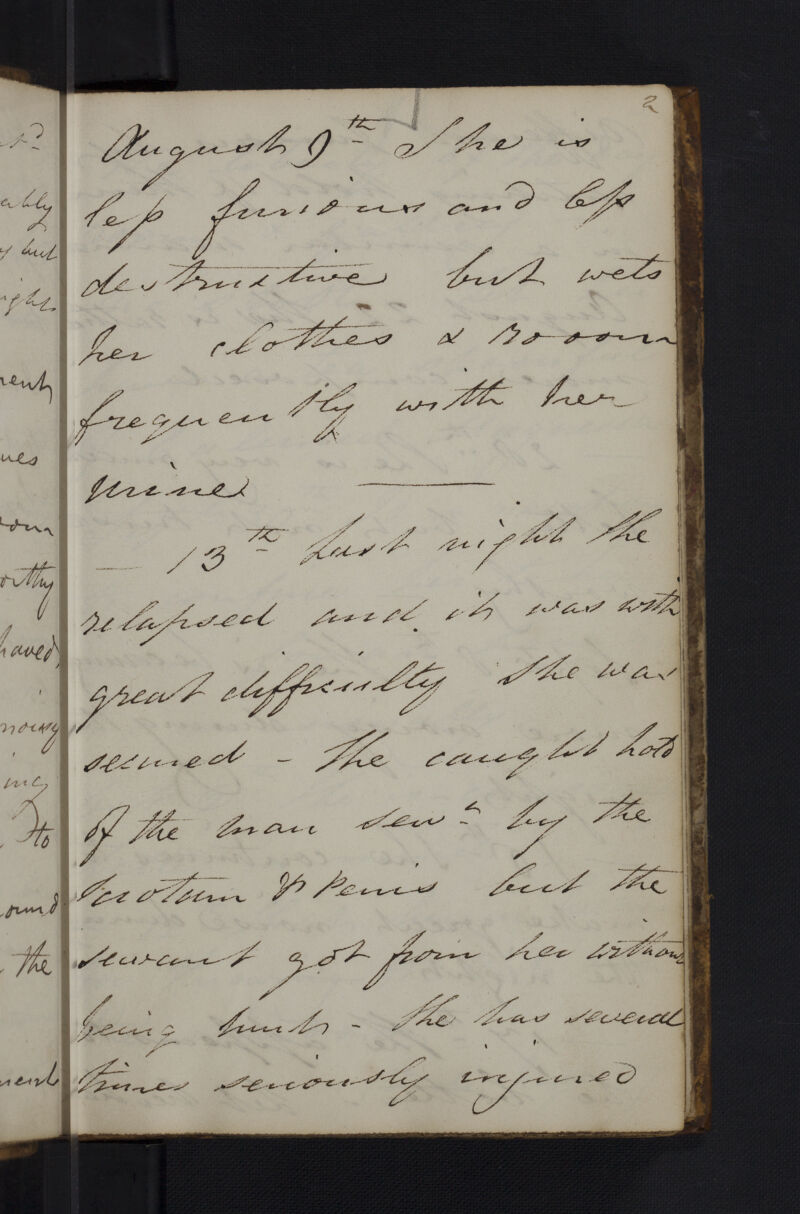 2
August 9th She is
less furious and less
destructive but wets
her clothes & rooom
frequently with her
urine
— 13th Last night she
relapsed and it was with
great difficulty she was
secured - She caught hold
of the man servt by the
scrotum & penis but the
servant got from her without
being hurt - She has several
times seriously injured